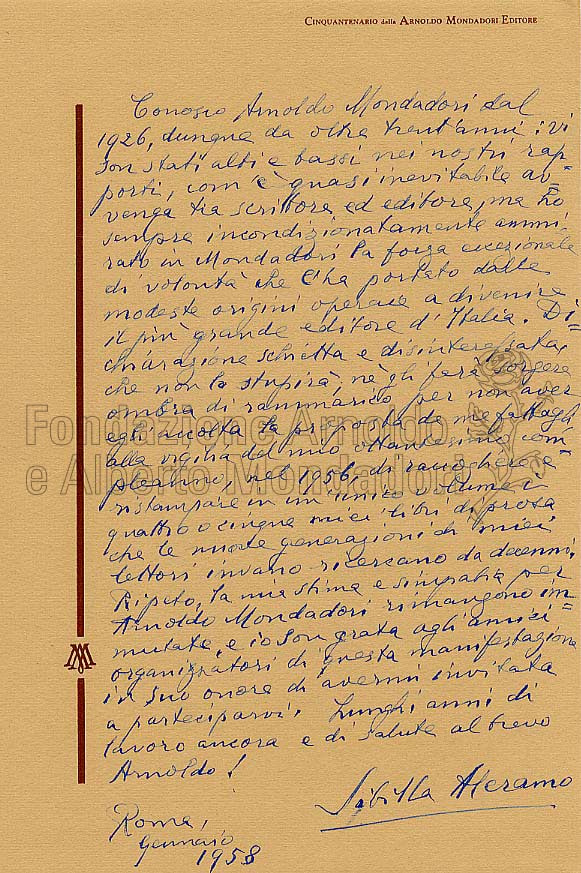 CINQUANTENARIO della ARNOLDO MONDADORI EDITORE
Conosco Arnoldo Mondadori dal
1926, dunque da oltre trent'anni: vi
son stati alti e bassi nei nostri rap=
porti, com'è quasi inevitabile av=
venga tra scrittore ed editore, ma ho
sempre incondizionatamente ammi
rato in Mondadori la forza eccezionale
di volontà che l'ha portato dalle
modeste origini operaie a divenire
il più grande editore d'Italia. Di=
chiarazione schietta e disinteressata,
che non lo stupirà, nè gli farà sorgere
ombra di rammarico per non aver
egli accolta la proposta da me fattagli
alla vigilia del mio ottantesimo com
pleanno, nel 1956, di raccogliere e
ristampare in un unico volume i
quattro o cinque miei libri di prosa
che le nuove generazioni di miei
lettori invano ricercano da decenni.
Ripeto, la mia stima e simpatia per
Arnoldo Mondadori rimangono im=
mutate, e io son grata agli amici
organizzatori di questa manifestazione
in suo onore di avermi invitata
a parteciparvi. Lunghi anni di
lavoro ancora e di salute al bravo
Arnoldo!
Sibilla Aleramo
Roma,
Gennaio
1958
Fondazione Arnoldo
e Alberto Mondadori